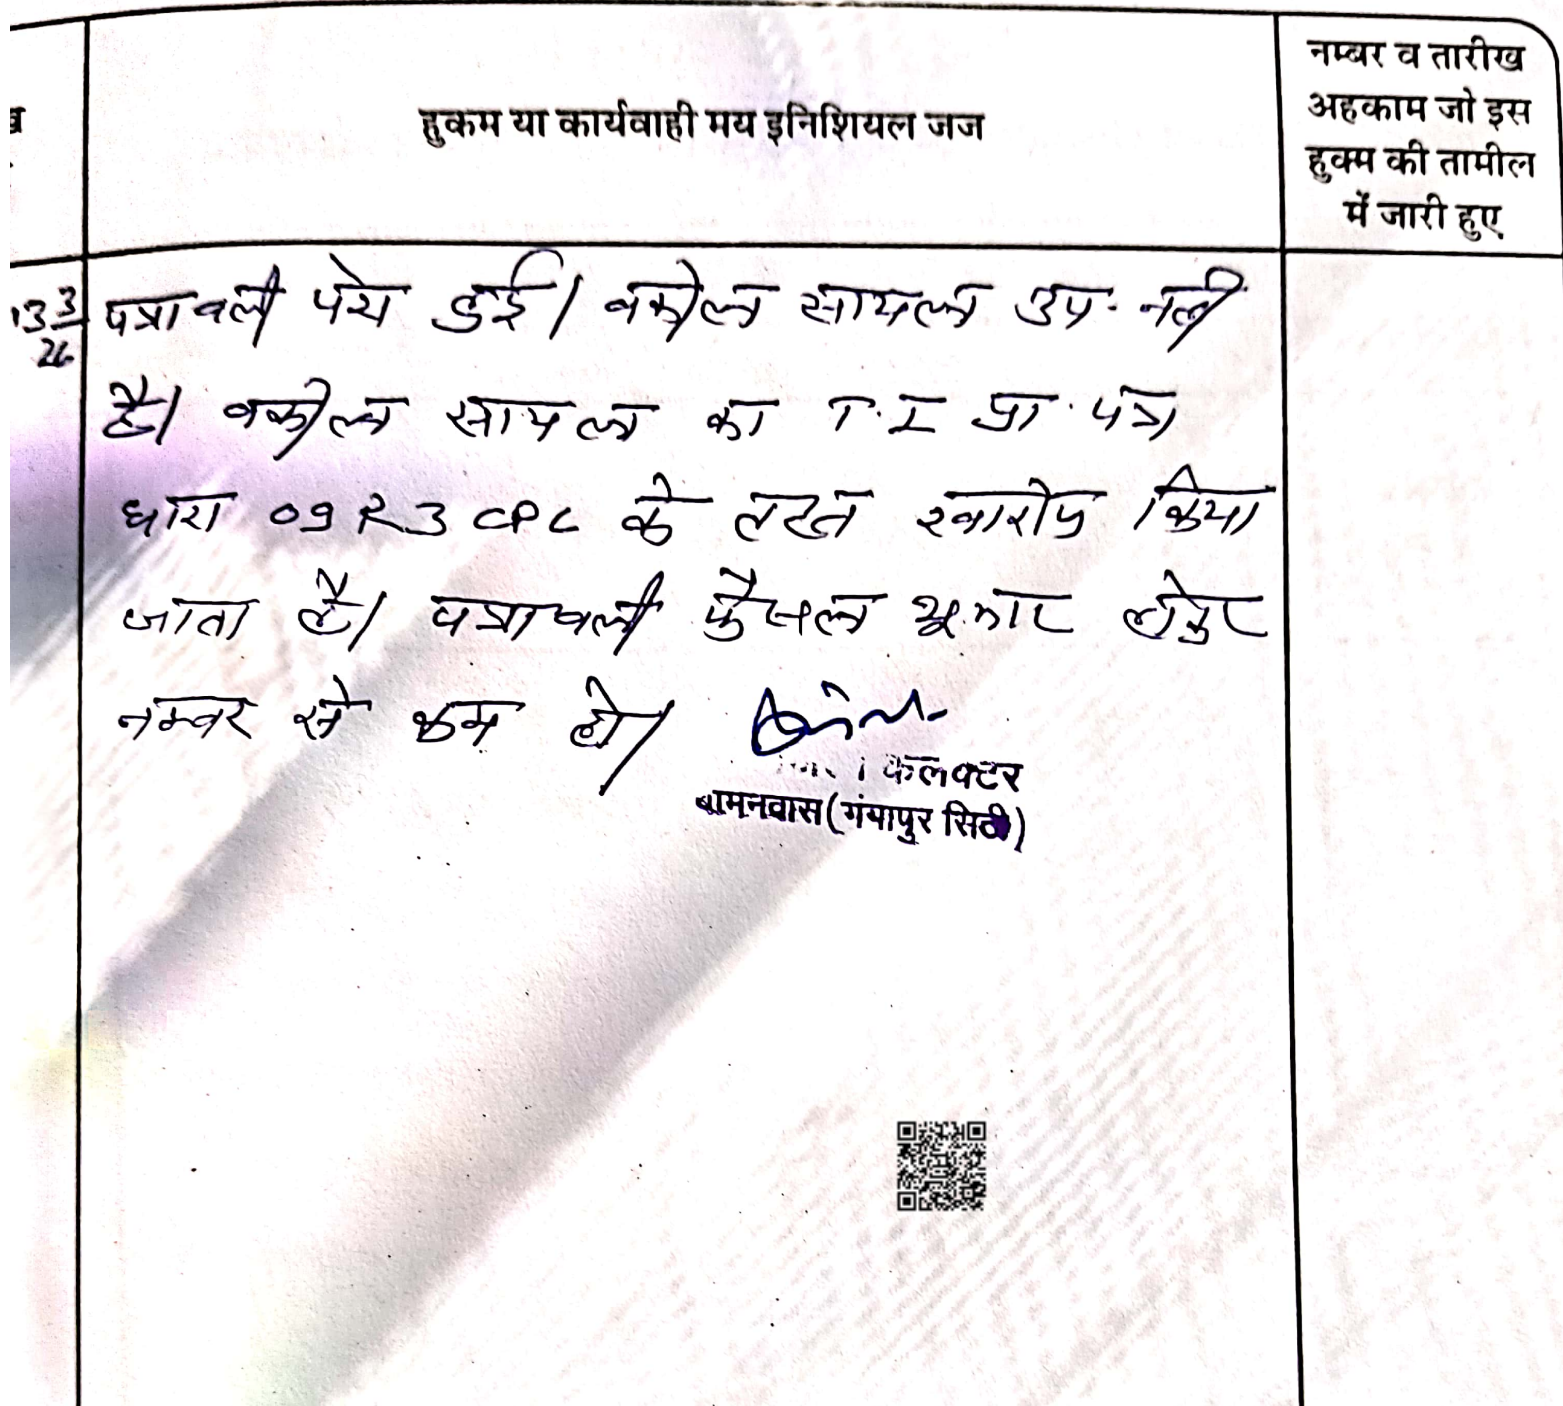 हुकम या कार्यवाही मय इनिशियल जज
नम्बर व तारीख
अहकाम जो इस
हुक्म की तामील
में जारी हुए
13 3/26
पत्रावली पेश हुई। वकील सायल उप. नही
है। वकील सायल का T.I प्रा. पत्र
धारा 09 R 3 CPC के तहत खारीज किया
जाता है। पत्रावली फैसल शुमार होकर
नम्बर से कम हो।
कलक्टर
बामनवास (गंगापुर सिटी)